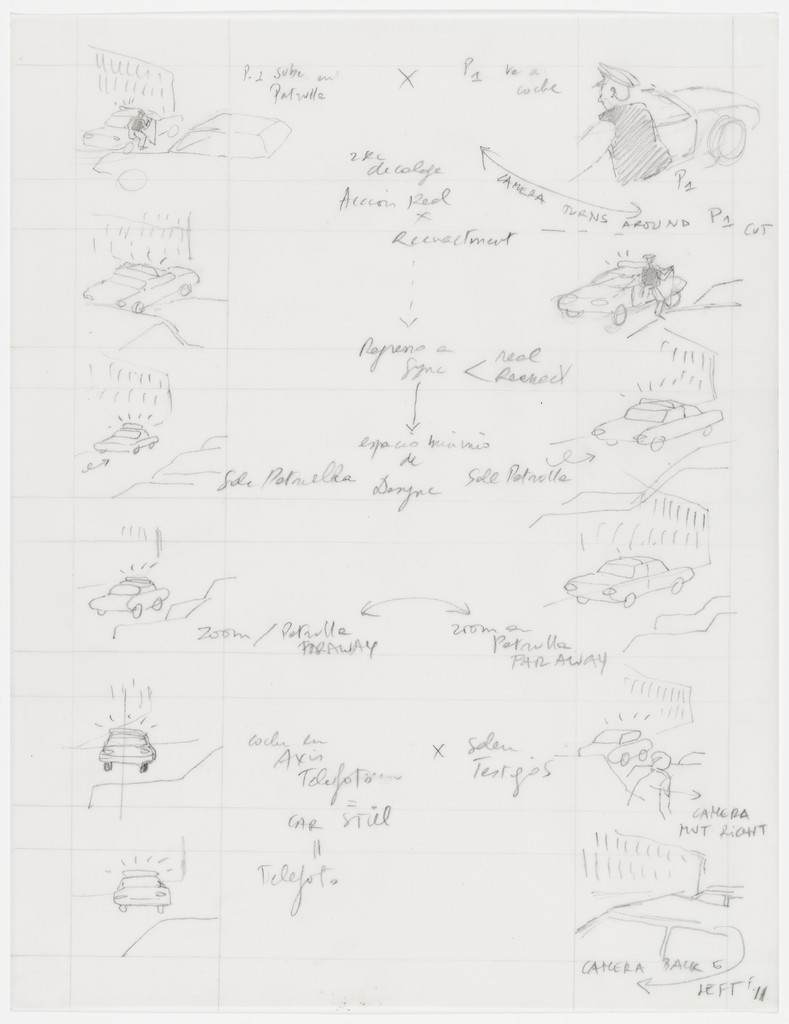 P.1 sube en
Patrulla
X
P1 va a
coche
P1
CAMERA TURNS AROUND P1
CUT
decalage
Accion Real
x
Reenactment
Regreso a
Sync
< real
Reenact
espacio minimo
de
Desync
Sale Patrulla
Sale Patrolla
ZOOM / Patrulla
FARAWAY
zoom a
Patrulla
FAR AWAY
coche en
Axis
=
CAR STILL
=
Telefoto
x
Salen
Testigos
CAMERA
MVT RIGHT
CAMERA BACK
LEFT